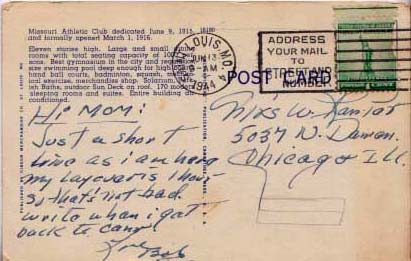 Missouri Athletic Club dedicated June 9, 1915,
and formally opened March 1, 1916.
Eleven stories high. Large and small dining
rooms with total seating capacity of 100
sons. Best gymnasium in the city and
size swimming pool deep enough for high
hand ball courts, badminton, squash,
ical exercise, merchandise shop. Solarium,
ish Baths, outdoor Sun Deck on roof. 170 modern
sleeping rooms and suites. Entire building air
conditioned.
ST. LOUIS, MO.
JUN 13
AM
1944
ADDRESS
YOUR MAIL
TO
STREET AND
NUMBER
POST CARD
Hi Mom:
Just a short
line as I am here
my layover is 1 hour
So that's not bad.
write when I get
back to camp
Love Bob
Mrs W.
5037 N. Damen
Chicago Ill.